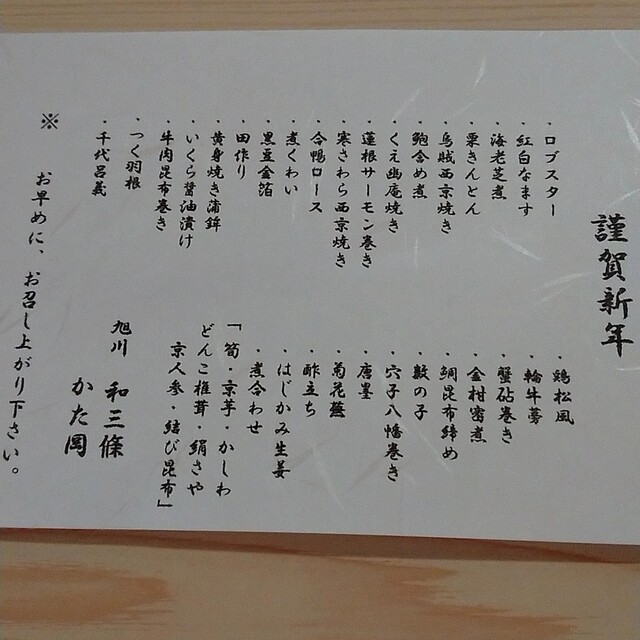 謹賀新年
・ロブスター
・紅白なます
・海老芝煮
・栗きんとん
・烏賊西京焼き
・鮑含め煮
・くえ幽庵焼き
・蓮根サーモン巻き
・寒さわら西京焼き
・合鴨ロース
・煮くわい
・黒豆金箔
・田作り
・黄身焼き蒲鉾
・いくら醤油漬け
・牛肉昆布巻き
・つく羽根
・千代呂義
・鶏松風
・輪牛蒡
・蟹砧巻き
・金柑蜜煮
・鯛昆布締め
・数の子
・穴子八幡巻き
・唐墨
・菊花蕪
・酢立ち
・はじかみ生姜
・煮合わせ
「筍・京芋・かしわ
どんこ椎茸・絹さや
京人参・結び昆布」
旭川 和三條
かた岡
※ お早めに、お召し上がり下さい。